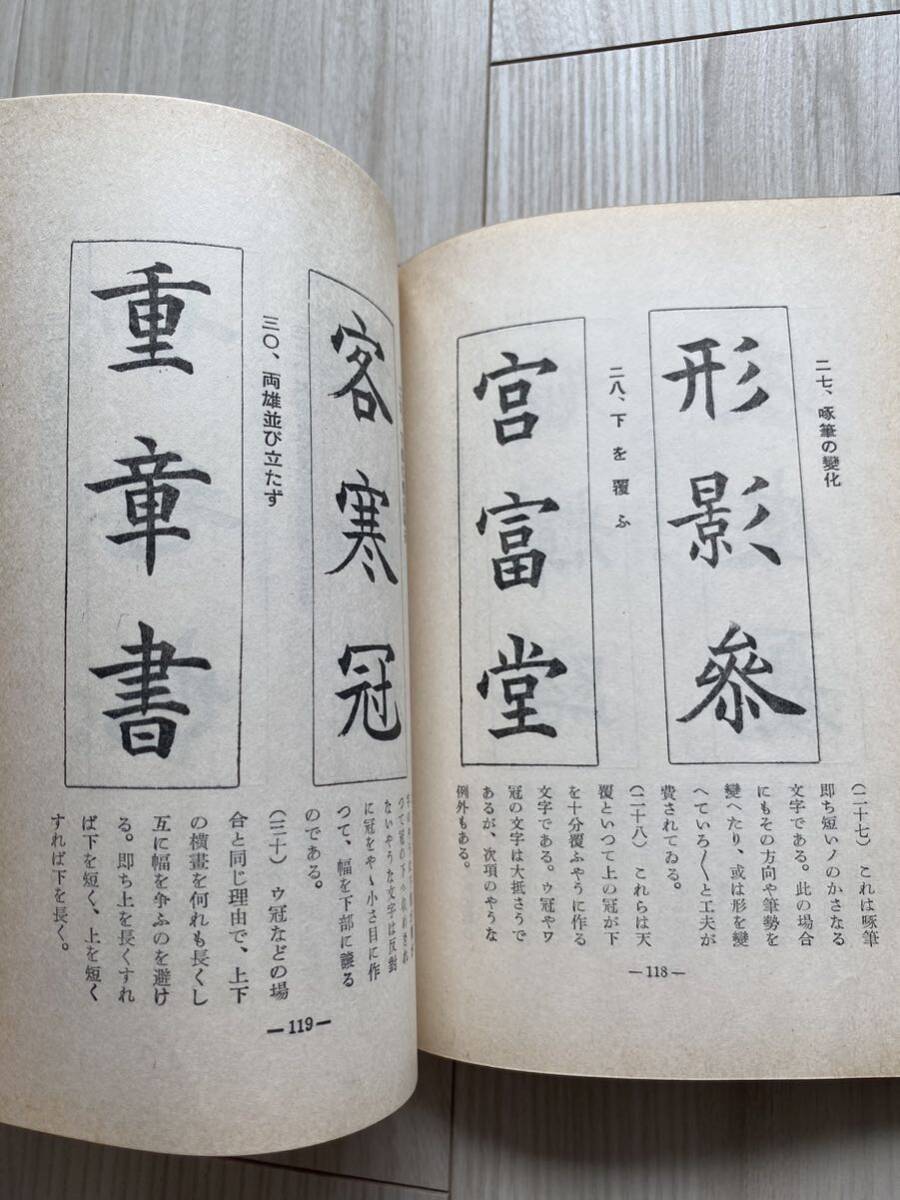 二七、啄筆の變化
形影叅
(二十七) これは啄筆
即ち短いノのかさなる
文字である。此の場合
にもその方向や筆勢を
變へたり、或は形を變
へていろ〳〵と工夫が
費されてゐる。
二八、下を覆ふ
宮富堂
(二十八) これらは天
覆といつて上の冠が下
を十分覆ふやうに作る
文字である。ウ冠やワ
冠の文字は大抵さうで
あるが、次項のやうな
例外もある。
—118—
客寒冠
たいそうな文字は反對
に冠をやゝ小さ目に作
つて、幅を下部に讓る
のである。
三〇、両雄並び立たず
重章書
(三十) ウ冠などの場
合と同じ理由で、上下
の横畫を何れも長くし
互に幅を争ふのを避け
る。即ち上を長くすれ
ば下を短く、上を短く
すれば下を長く。
—119—